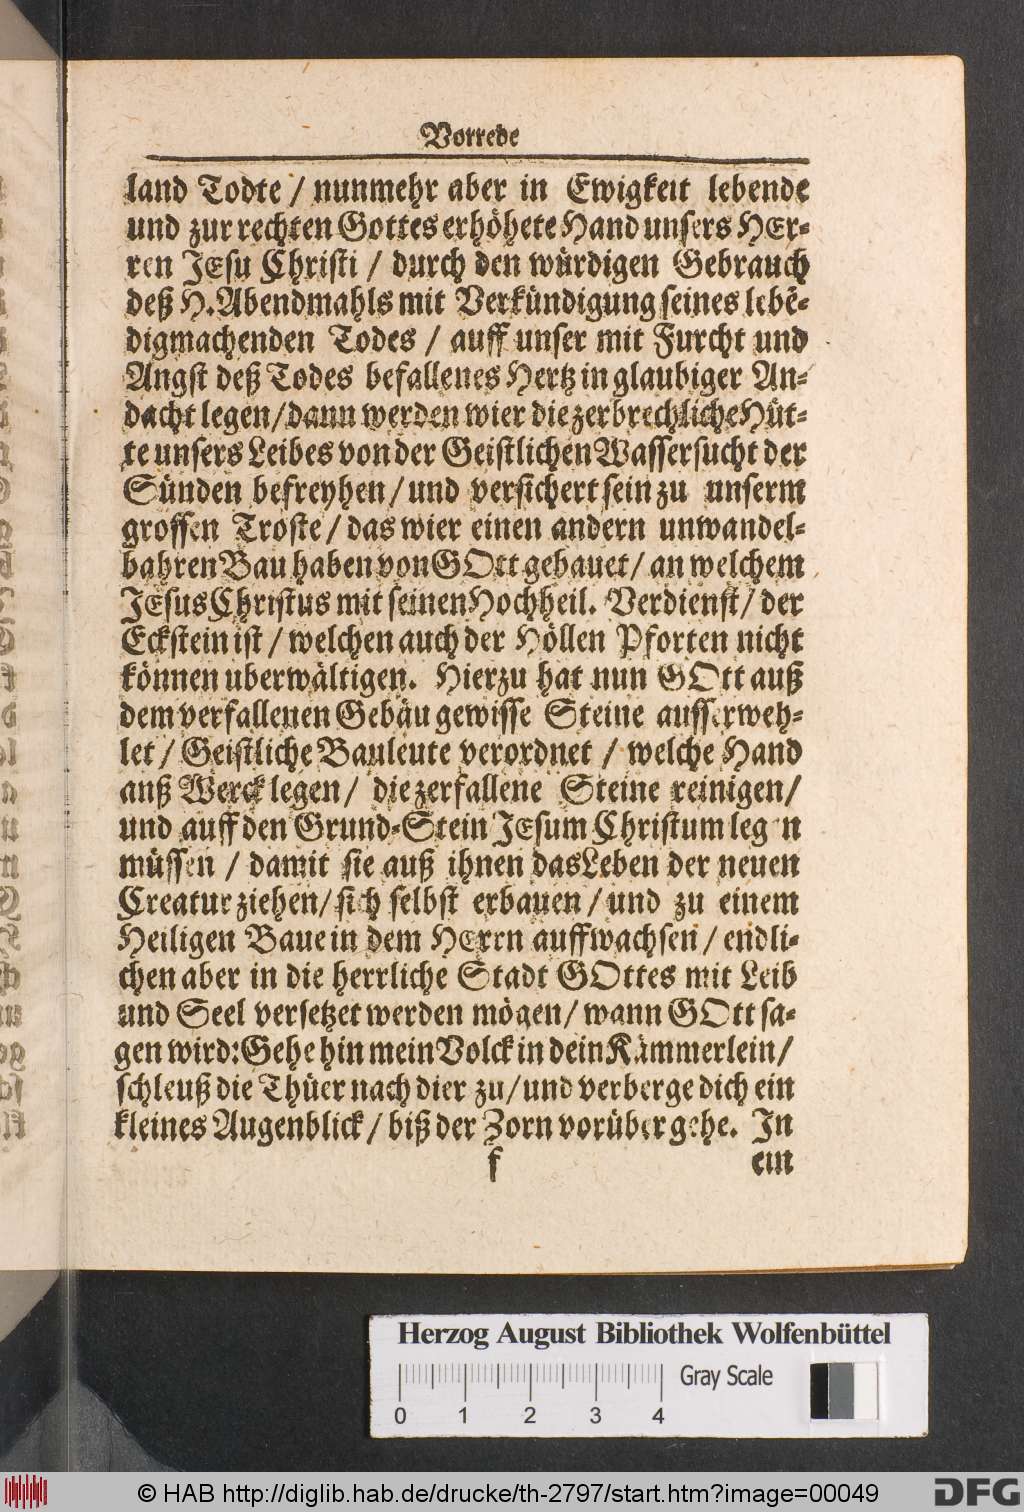 Vorrede
land Todte / nunmehr aber in Ewigkeit lebende
und zur rechten Gottes erhöhete Hand unsers HEr-
ren JEsu Christi / durch den würdigen Gebrauch
deß H. Abendmahls mit Verkündigung seines lebē-
digmachenden Todes / auff unser mit Furcht und
Angst deß Todes befallenes Hertz in glaubiger An-
dacht legen / dann werden wier die zerbrechliche Hüt-
te unsers Leibes von der Geistlichen Wassersucht der
Sünden befreyhen / und versichert sein zu unserm
grossen Troste / das wier einen andern unwandel-
bahren Bau haben von GOtt gebauet / an welchem
JEsus Christus mit seinen Hochheil. Verdienst / der
Eckstein ist / welchen auch der Höllen Pforten nicht
können uberwältigen. Hierzu hat nun GOtt auß
dem verfallenen Gebäu gewisse Steine ausserweh-
let / Geistliche Bauleute verordnet / welche Hand
anß Werck legen / die zerfallene Steine reinigen /
und auff den Grund-Stein JEsum Christum legen
müssen / damit sie auß ihnen das Leben der neuen
Creatur ziehen / sich selbst erbauen / und zu einem
Heiligen Baue in dem HErrn auffwachsen / endli-
chen aber in die herrliche Stadt GOttes mit Leib
und Seel versetzet werden mögen / wann GOtt sa-
gen wird: Gehe hin mein Volck in dein Kämmerlein /
schleuß die Thüer nach dier zu / und verberge dich ein
kleines Augenblick / biß der Zorn vorüber gehe. In
f ein
Herzog August Bibliothek Wolfenbüttel
Gray Scale
0 1 2 3 4
© HAB http://diglib.hab.de/drucke/th-2797/start.htm?image=00049
DFG